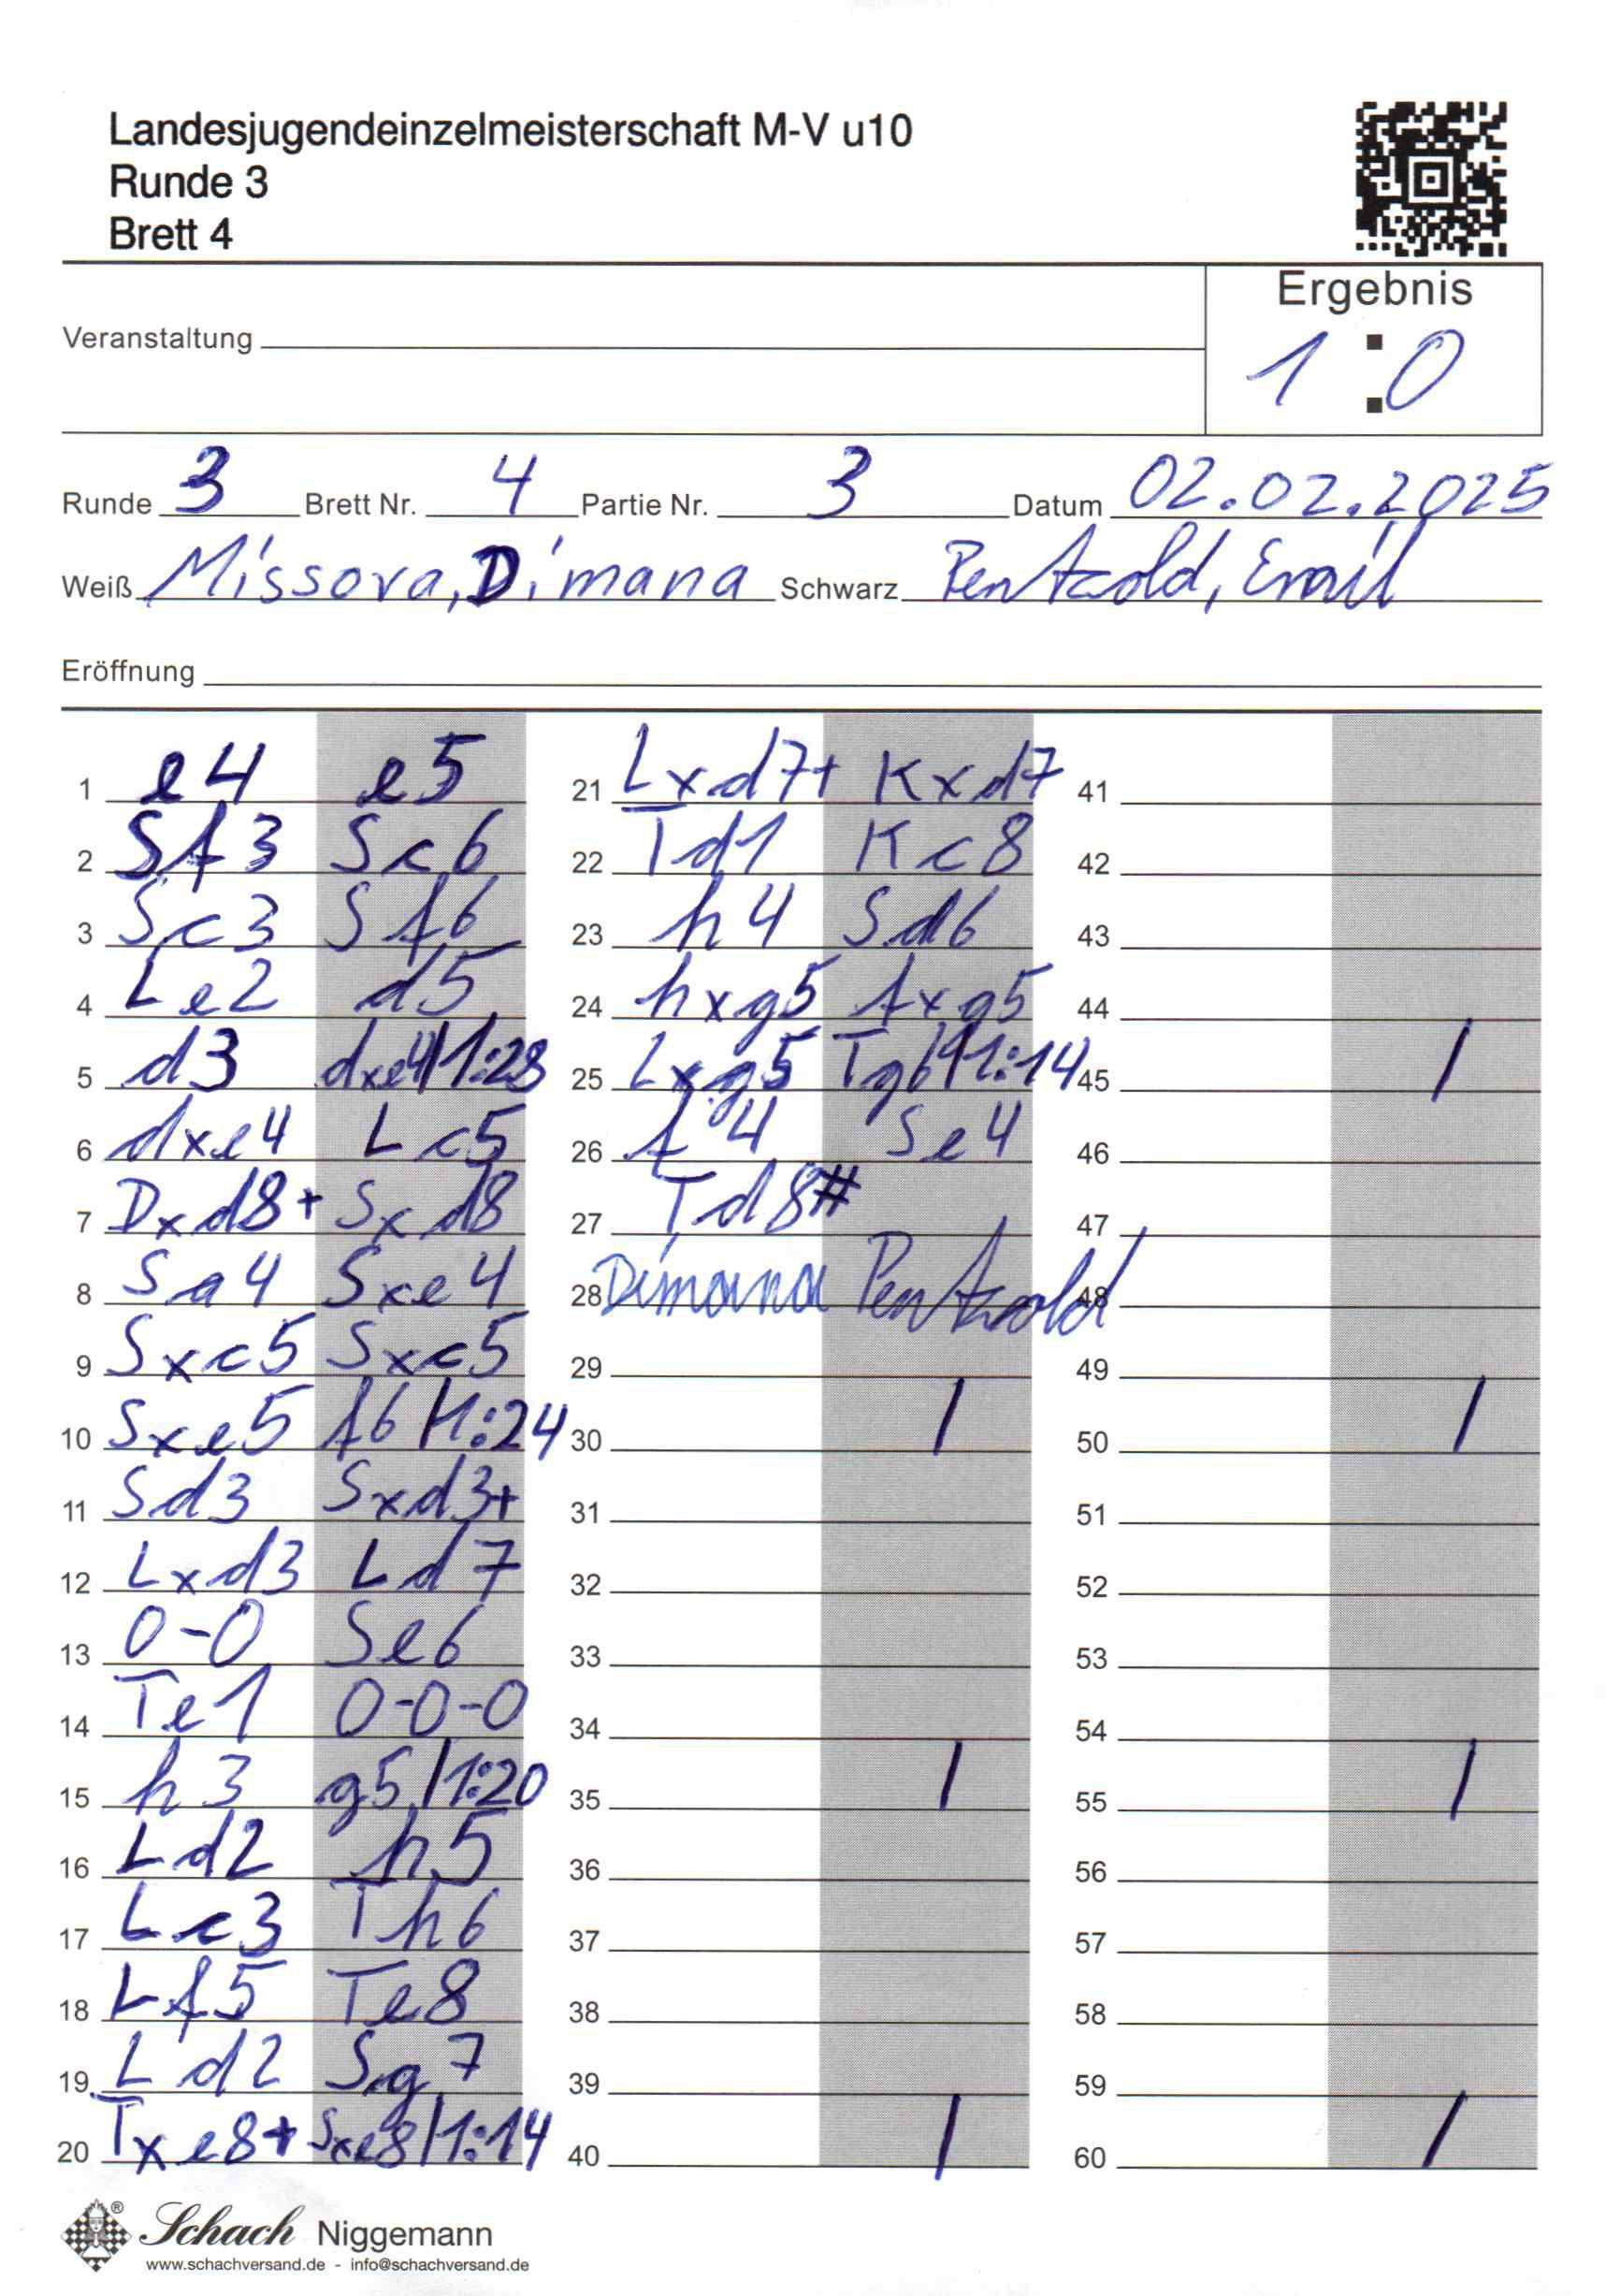 Landesjugendeinzelmeisterschaft M-V u10
Runde 3
Brett 4
Ergebnis
1 : 0
Veranstaltung
Runde 3 Brett Nr. 4 Partie Nr. 3 Datum 02.02.2025
Weiß Missova, Dimana Schwarz Pentzold, Emil
Eröffnung
1 e4 e5
2 Sf3 Sc6
3 Sc3 Sf6
4 Le2 d5
5 d3 dxe4/1:28
6 dxe4 Lc5
7 Dxd8+ Sxd8
8 Sa4 Sxe4
9 Sxc5 Sxc5
10 Sxe5 f6/1:24
11 Sd3 Sxd3+
12 Lxd3 Ld7
13 0-0 Se6
14 Te1 0-0-0
15 h3 g5/1:20
16 Ld2 h5
17 Lc3 Th6
18 Lf5 Te8
19 Ld2 Sg7
20 Txe8+ Sxe8/1:14
21 Lxd7+ Kxd7
22 Td1 Kc8
23 h4 Sd6
24 hxg5 fxg5
25 Lxg5 Tg6/1:14
26 f4 Se4
27 Td8#
28 Dimana Pentzold
29
30 /
31
32
33
34
35 /
36
37
38
39
40 /
41
42
43
44
45 /
46
47
48
49
50 /
51
52
53
54
55 /
56
57
58
59
60 /
Schach Niggemann
www.schachversand.de - info@schachversand.de